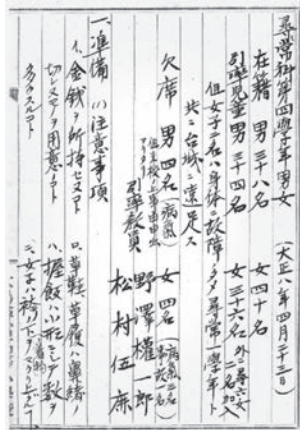 尋常科第四學年男女（大正八年四月二十三日）
在籍　男三十八名　女四十名
引率児童男三十四名　女三十六名 外ニ尋六女二名加入
但女子ニ在ハ身体ニ故障ノタメ尋常一學年ト
共ニ台城ニ遠足ス
欠席　男四名（病氣）女四名（病氣三名 事故一名）
引率教員　野澤權一郎
松村伍
一、準備　(1)注意事項
イ、金銭ヲ所持セヌコト　ロ、草鞋、草履ハ鼻緒ノ
切レヌヤウ用意ノコト　ハ、握飯ハ小形ニシテ数ヲ
多クスルコト　ニ、女子ハ袴